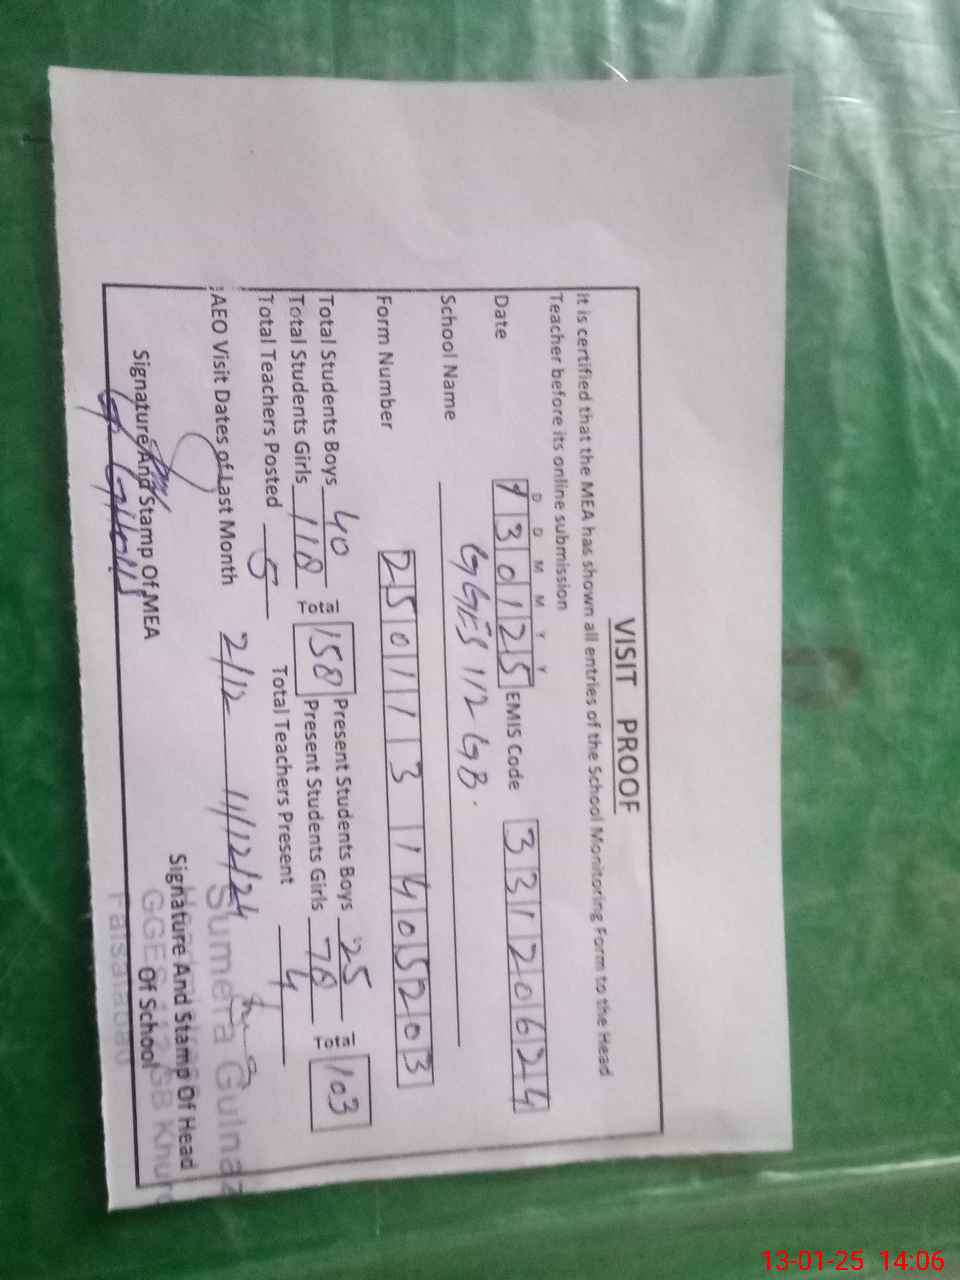 VISIT PROOF
It is certified that the MEA has shown all entries of the School Monitoring Form to the Head
Teacher before its online submission
D D M M Y Y
Date 130125 EMIS Code 33120624
School Name GGES 112 GB.
Form Number 2501131405203
Total Students Boys 40 Total 158 Present Students Boys 25 Total 103
Total Students Girls 118 Present Students Girls 78
Total Teachers Posted 5 Total Teachers Present 4
AEO Visit Dates of Last Month 2/12 11/12/24
Sumera Gulnaz
Signature And Stamp Of MEA Signature And Stamp Of Head
Of School
GGES 112 GB Khur
Faisalabad
13-01-25 14:06